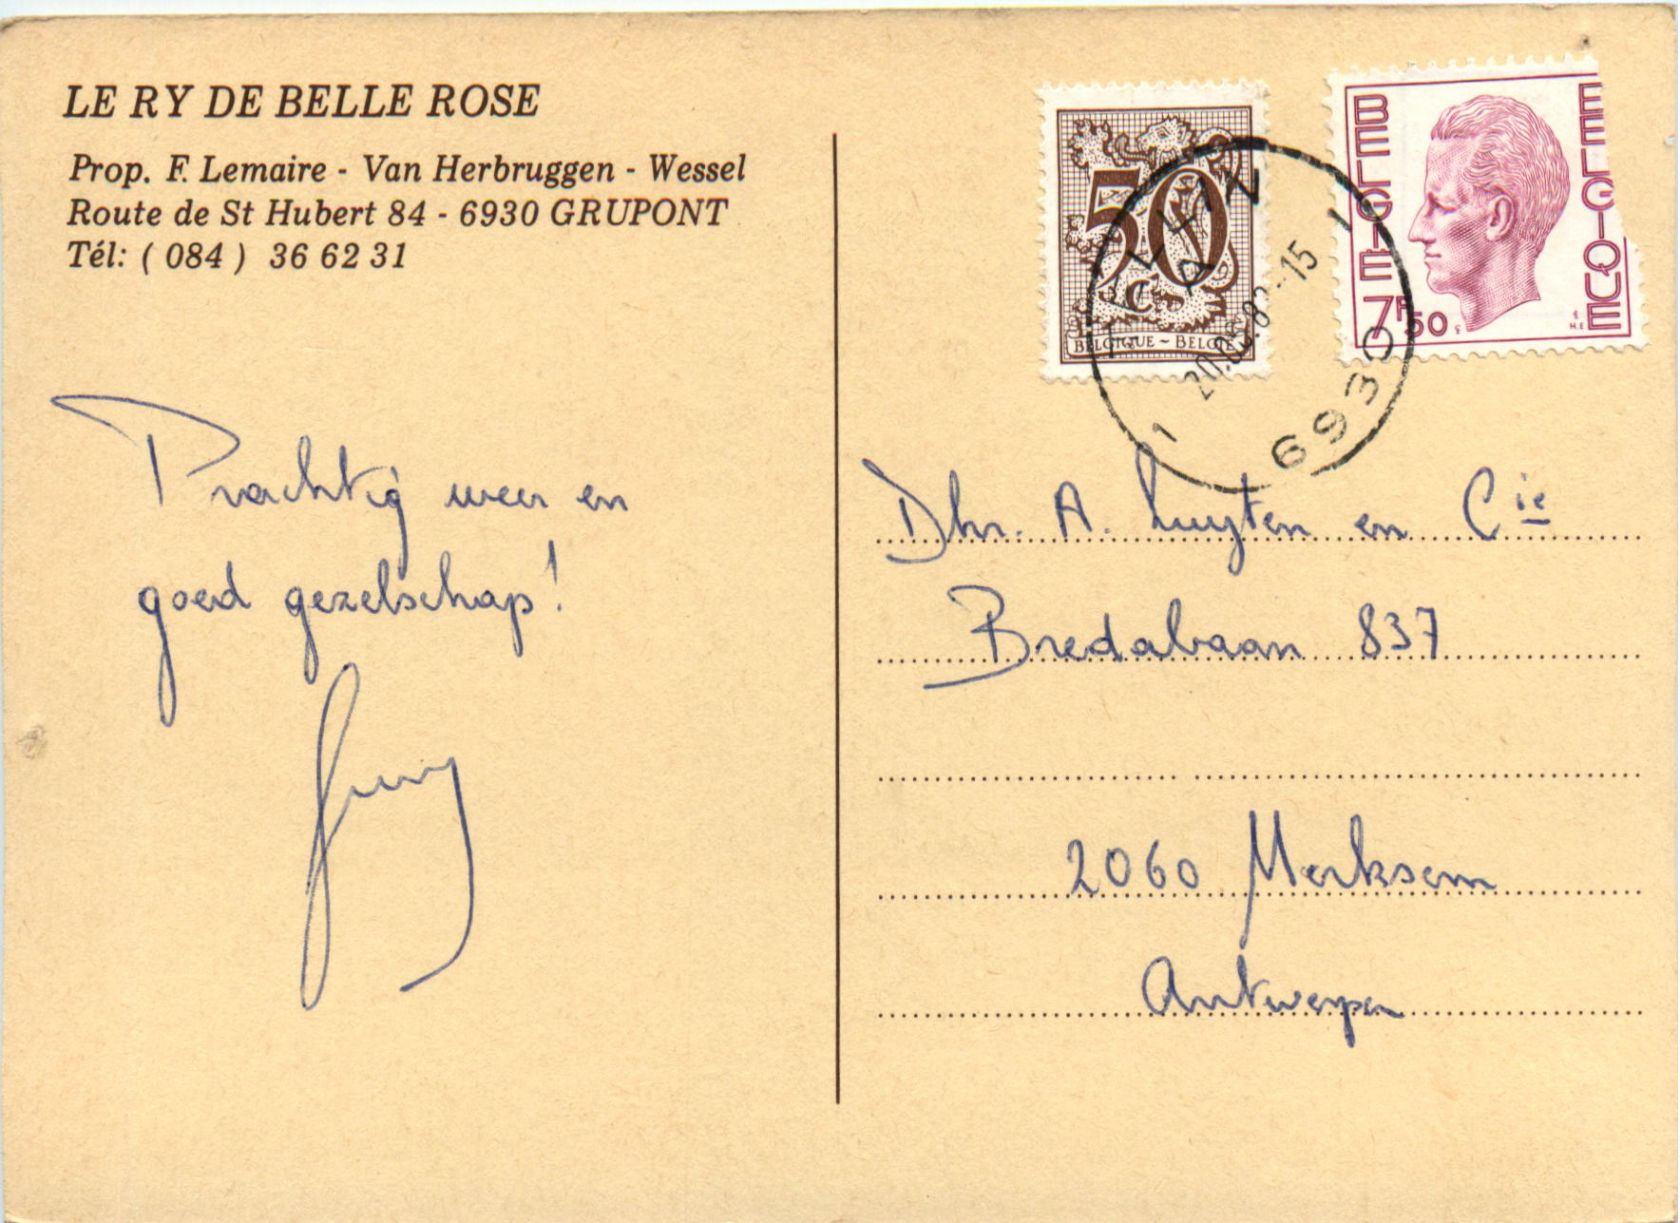 LE RY DE BELLE ROSE
Prop. F. Lemaire - Van Herbruggen - Wessel
Route de St Hubert 84 - 6930 GRUPONT
Tél: ( 084 ) 36 62 31
50
C
BELGIQUE ~ BELGIË
BELGIE
BELGIQUE
7F50
TELLIN
1
15
6930
Prachtig weer en
goed gezelschap!
Dhr. A. Luyten en Cie
Bredabaan 837
2060 Merksem
Antwerpen